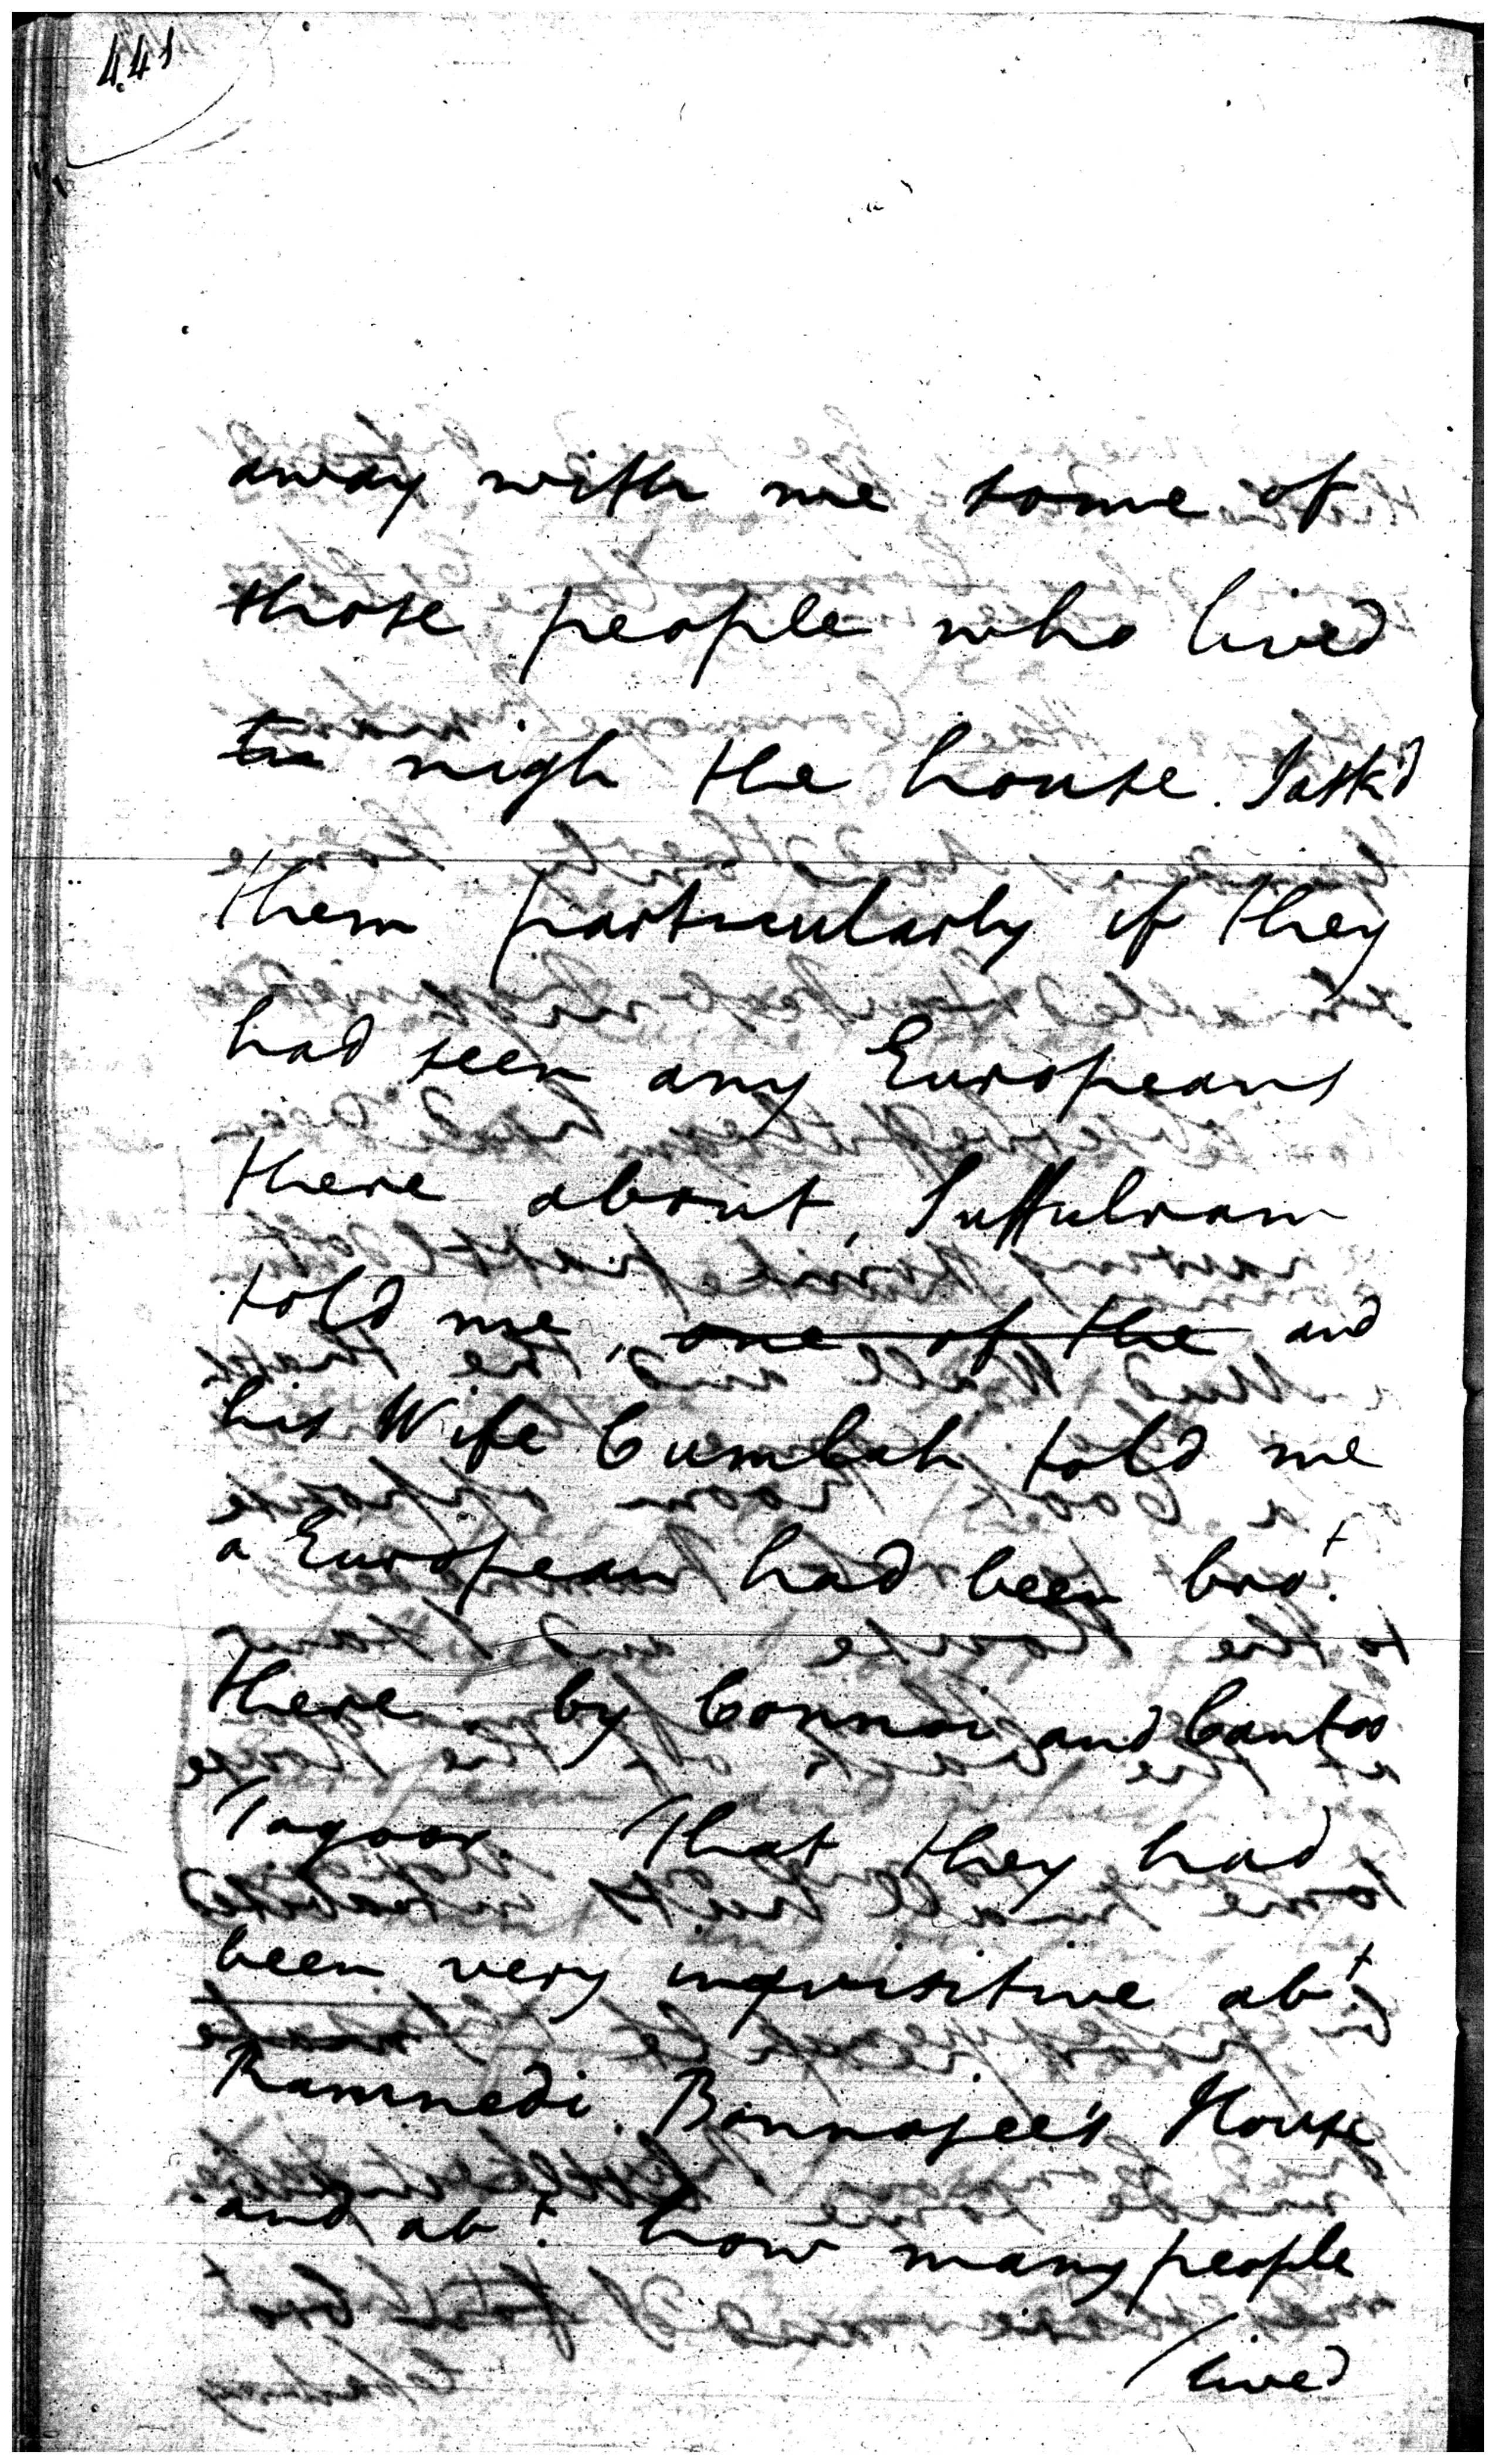 441
away with me some of
those people who lived
nigh the house. I ask'd
them particularly if they
had seen any Europeans
there about, Suffulram
told me, one of the and
his Wife Cumbah told me
a European had been bro.t
there by Connoi and Cantoo
Tagoor. That they had
been very inquisitive ab.t
Ramnedi Bonnojee's House
and ab.t how many people
/ lived